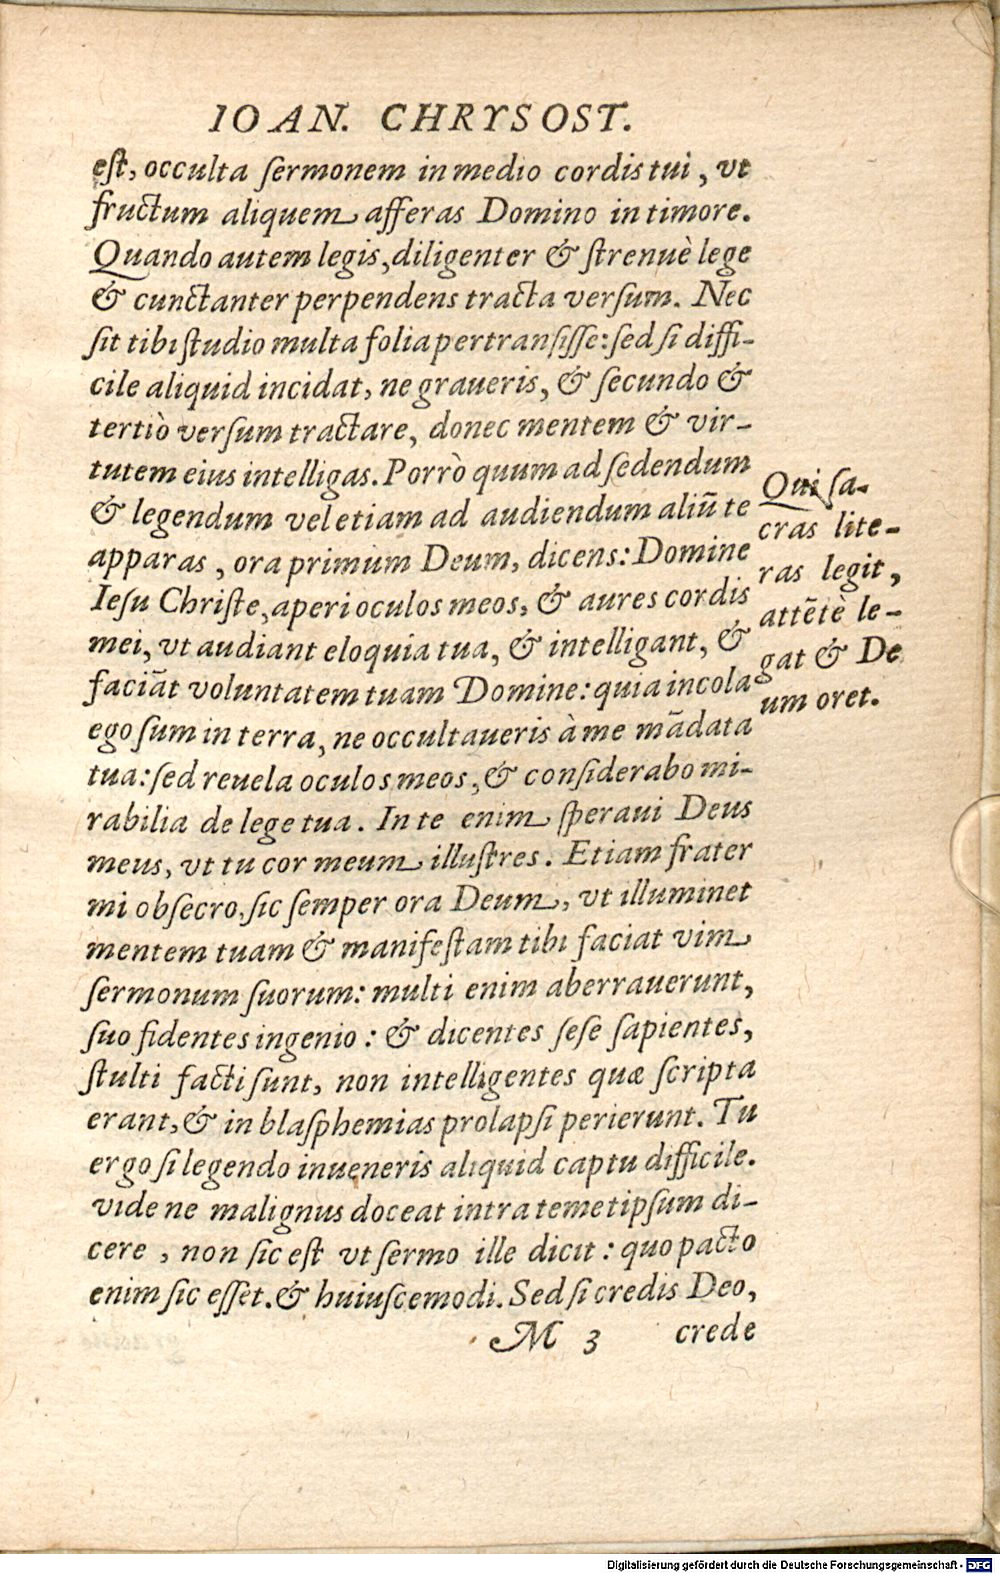 IOAN. CHRYSOST.
est, occulta sermonem in medio cordis tui, vt
fructum aliquem afferas Domino in timore.
Quando autem legis, diligenter & strenuè lege
& cunctanter perpendens tracta versum. Nec
sit tibi studio multa folia pertransisse: sed si diffi-
cile aliquid incidat, ne graueris, & secundo &
tertiò versum tractare, donec mentem & vir-
tutem eius intelligas. Porrò quum ad sedendum
& legendum vel etiam ad audiendum aliũ te
apparas, ora primum Deum, dicens: Domine
Iesu Christe, aperi oculos meos, & aures cordis
mei, vt audiant eloquia tua, & intelligant, &
faciãt voluntatem tuam Domine: quia incola
ego sum in terra, ne occultaueris à me mãdata
tua: sed reuela oculos meos, & considerabo mi-
rabilia de lege tua. In te enim speraui Deus
meus, vt tu cor meum illustres. Etiam frater
mi obsecro, sic semper ora Deum, vt illuminet
mentem tuam & manifestam tibi faciat vim
sermonum suorum: multi enim aberrauerunt,
suo fidentes ingenio: & dicentes sese sapientes,
stulti facti sunt, non intelligentes quæ scripta
erant, & in blasphemias prolapsi perierunt. Tu
ergo si legendo inueneris aliquid captu difficile.
vide ne malignus doceat intra temetipsum di-
cere, non sic est vt sermo ille dicit: quo pacto
enim sic esset. & huiuscemodi. Sed si credis Deo,
M 3 crede
Qui sa-
cras lite-
ras legit,
attẽtè le-
gat & De
um oret.
Digitalisierung gefördert durch die Deutsche Forschungsgemeinschaft - DFG